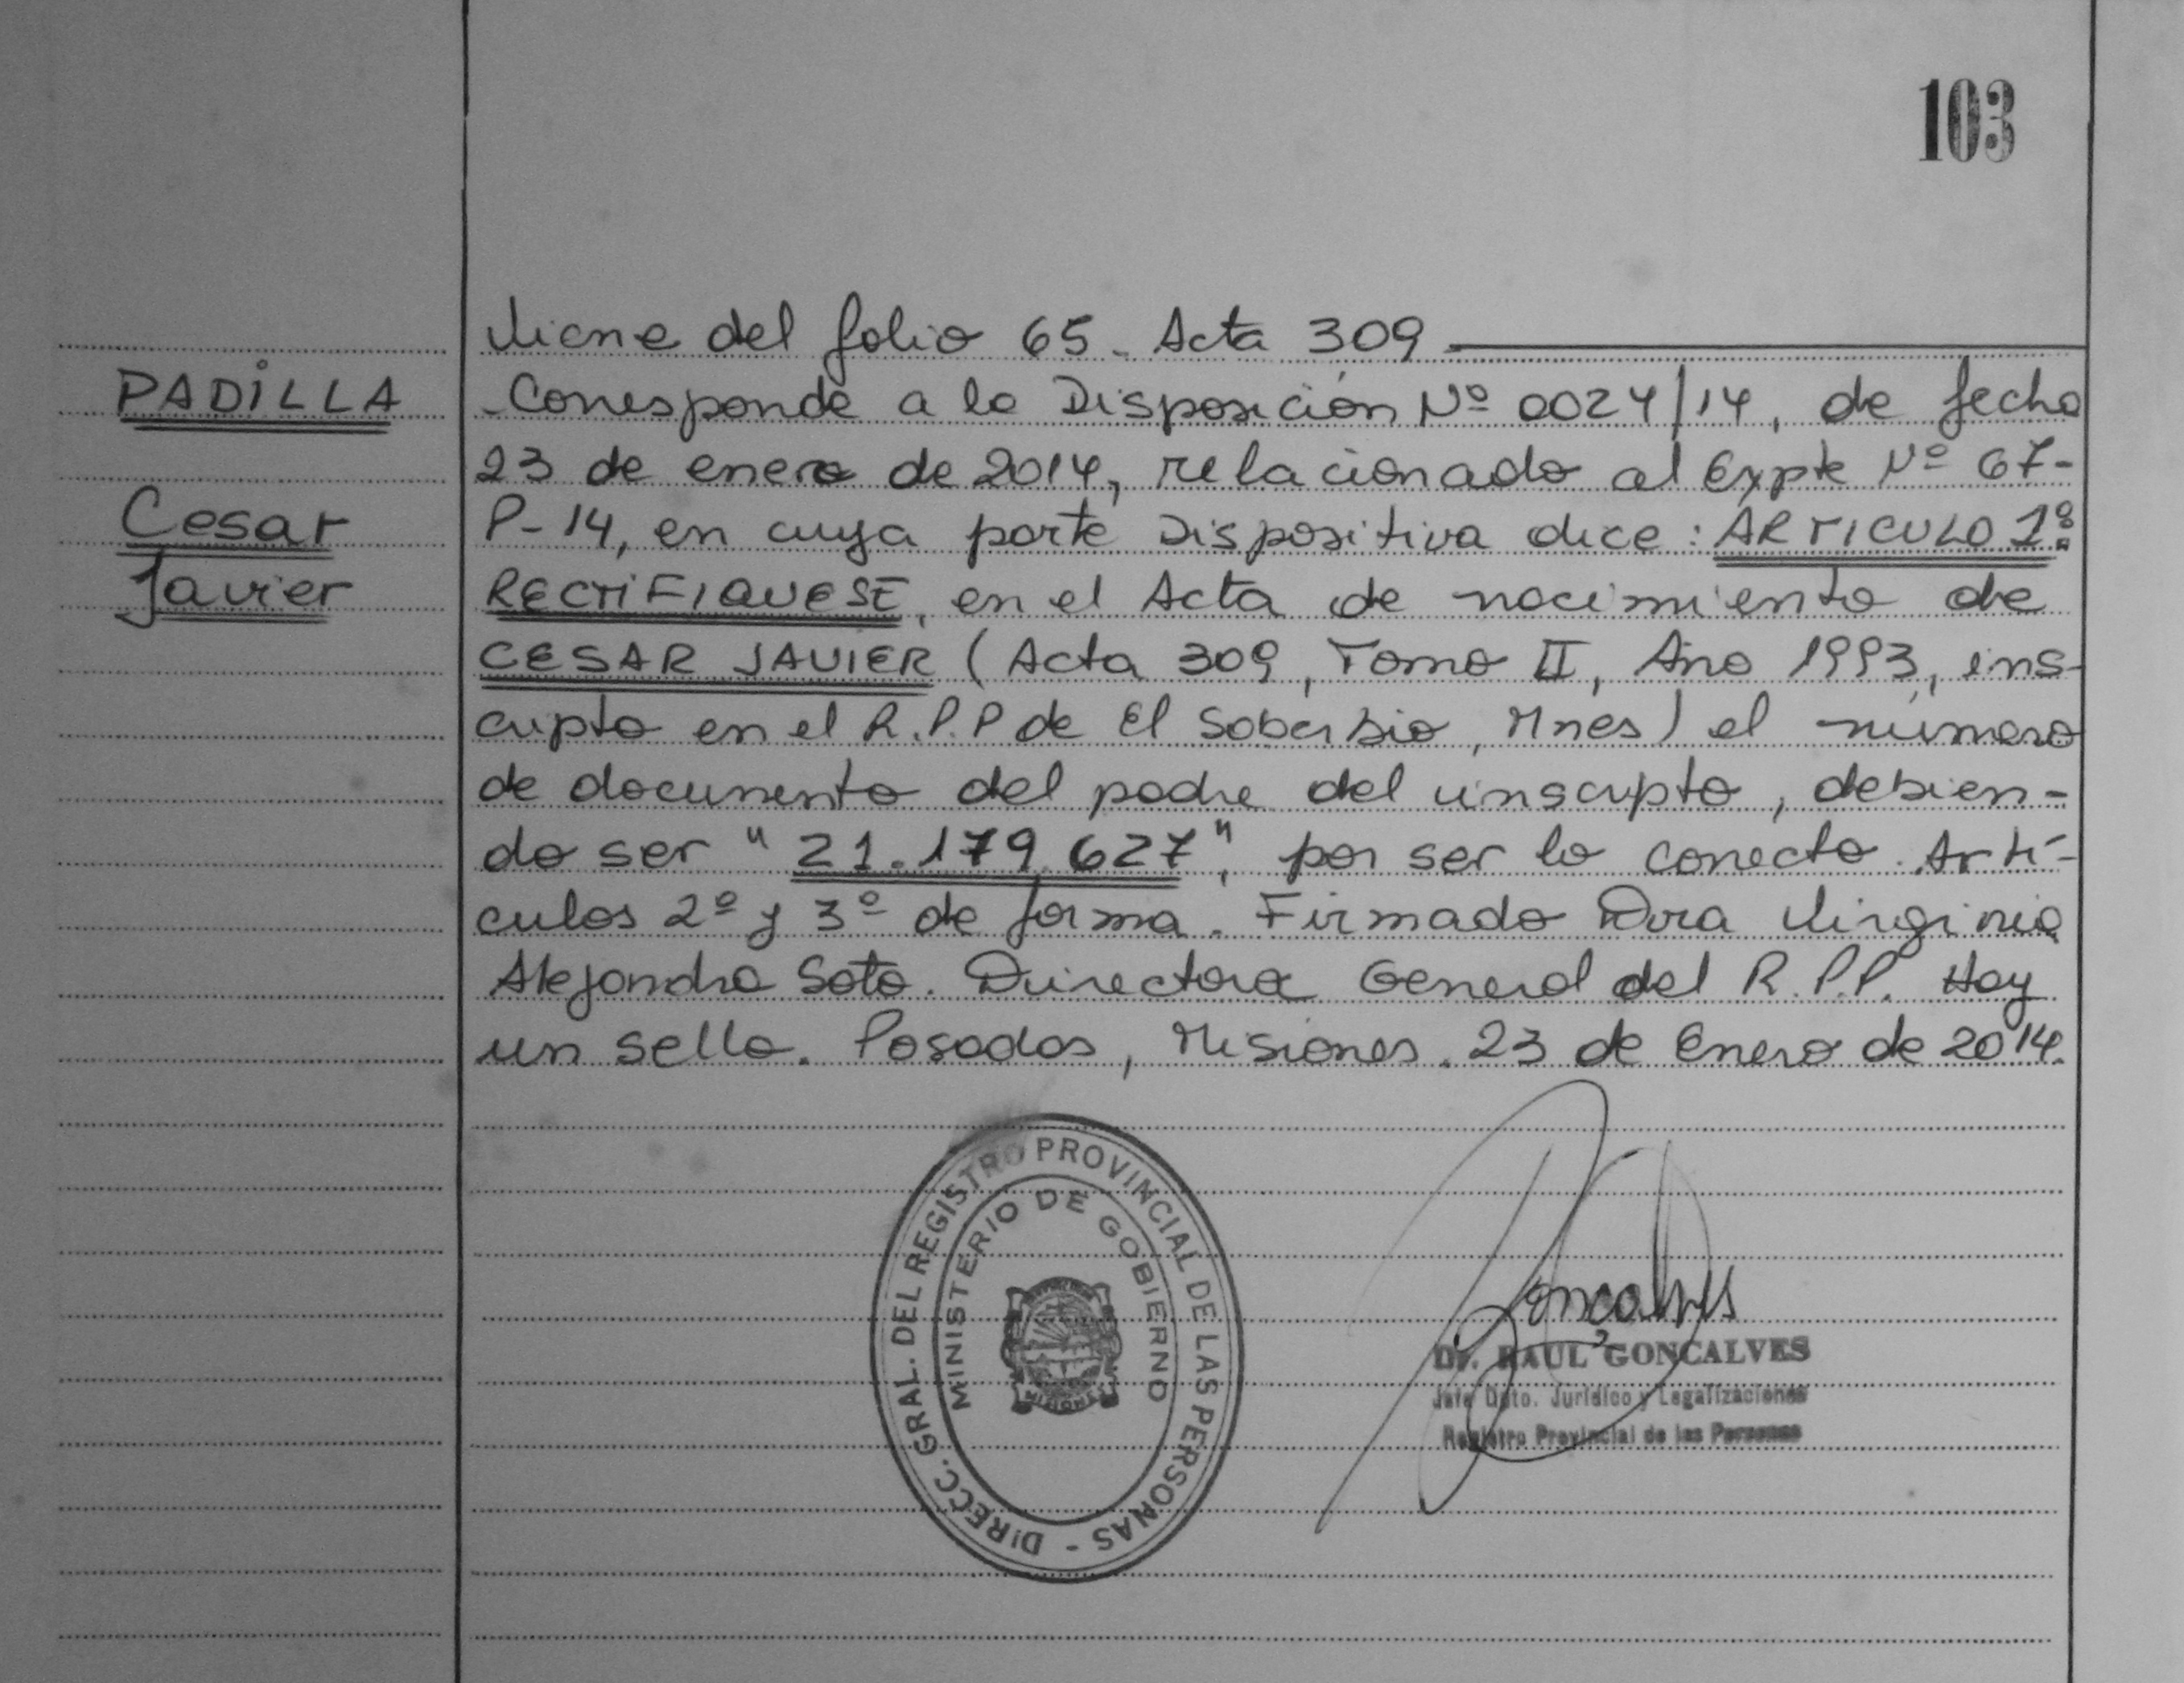 103
Viene del folio 65. Acta 309
PADILLA
Cesar
Javier
-Corresponde a la Disposición Nº 0024/14, de fecha
23 de enero de 2014, relacionado al Expte Nº 67-
P-14, en cuya parte Dispositiva dice: ARTICULO 1º:
RECTIFIQUESE, en el Acta de nacimiento de
CESAR JAVIER (Acta 309, Tomo II, Año 1993, ins-
cripto en el R.P.P de El Soberbio, Mnes) el número
de documento del padre del inscripto, debien-
do ser "21.179.627", por ser lo correcto. Artí-
culos 2º y 3º de forma. Firmado Dra Virginia
Alejandra Soto. Directora General del R.P.P. Hay
un sello. Posadas, Misiones. 23 de Enero de 2014.
DIRECC. GRAL. DEL REGISTRO PROVINCIAL DE LAS PERSONAS -
MINISTERIO DE GOBIERNO
MISIONES
Goncalves
Dr. RAUL GONCALVES
Jefe Dpto. Jurídico y Legalizaciones
Registro Provincial de las Personas